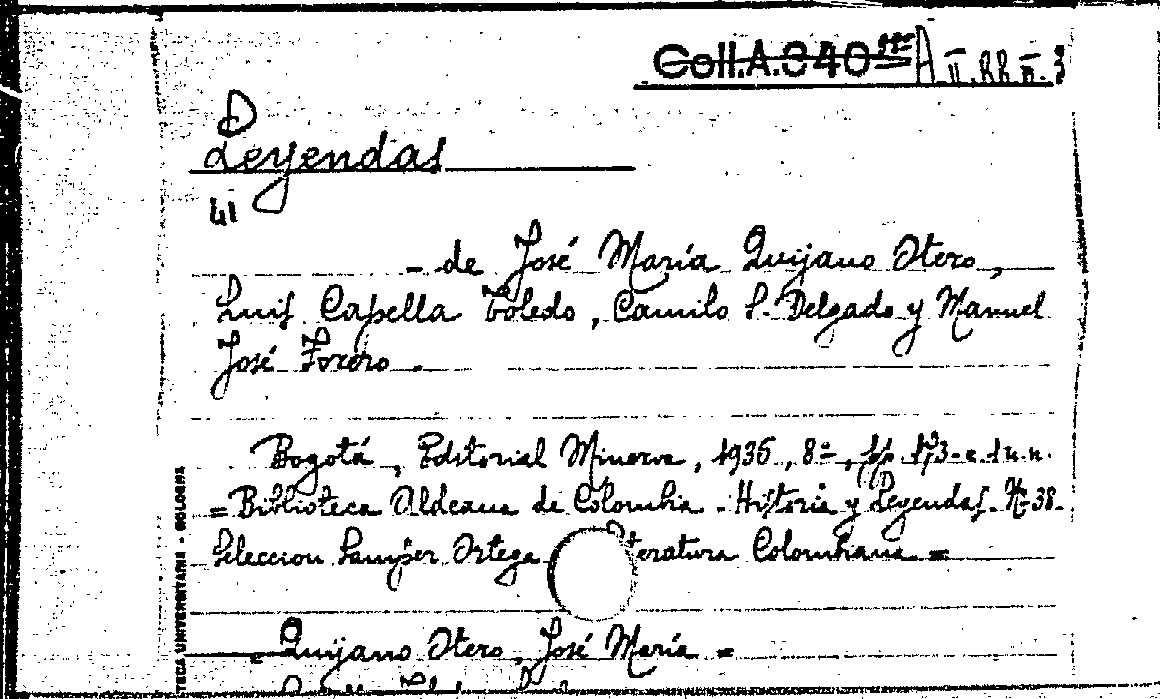 Coll.A.340 A
Leyendas
41
- de José María Quijano Otero,
Luis Capella Toledo, Camilo S. Delgado y Manuel
José Forero.
Bogotá, Editorial Minerva, 1936, 8º, pp. 173 e 1 n.n.
= Biblioteca Aldeana de Colombia - Historia y Leyendas. Nº 38.
Seleccion Samper Ortega Literatura Colombiana =
Quijano Otero, José María =
TECA UNIVERSITARIA - BOLOGNA